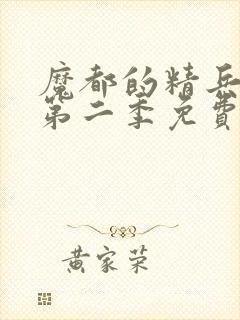 魔都的精兵
第二季免費
黄家荣